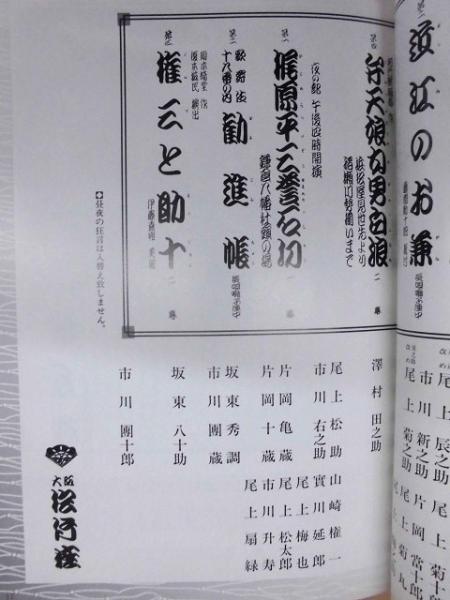 近江のお兼
長唄囃子連中
弁天娘女男白浪
浜松屋見世先より
稲瀬川勢揃いまで
二幕
夜の部 午後四時開演
第一
梶原平三誉石切
鎌倉八幡社頭の場
一幕
第二
歌舞伎
十八番の内
勧進帳
長唄囃子連中
権三と助十
二幕
岡本綺堂 作
伊藤熹朔 美術
【昼夜の狂言は入替え致しません。】
尾上 辰之助
市川 新之助
尾上 菊之助
片岡 當十郎
澤村 田之助
尾上 松助
市川 右之助
片岡 亀蔵
片岡 十蔵
坂東 秀調
市川 團蔵
坂東 八十助
市川 團十郎
山崎 権一
實川 延郎
尾上 梅也
尾上 松太郎
市川 升寿
尾上 扇緑
大阪
松竹座